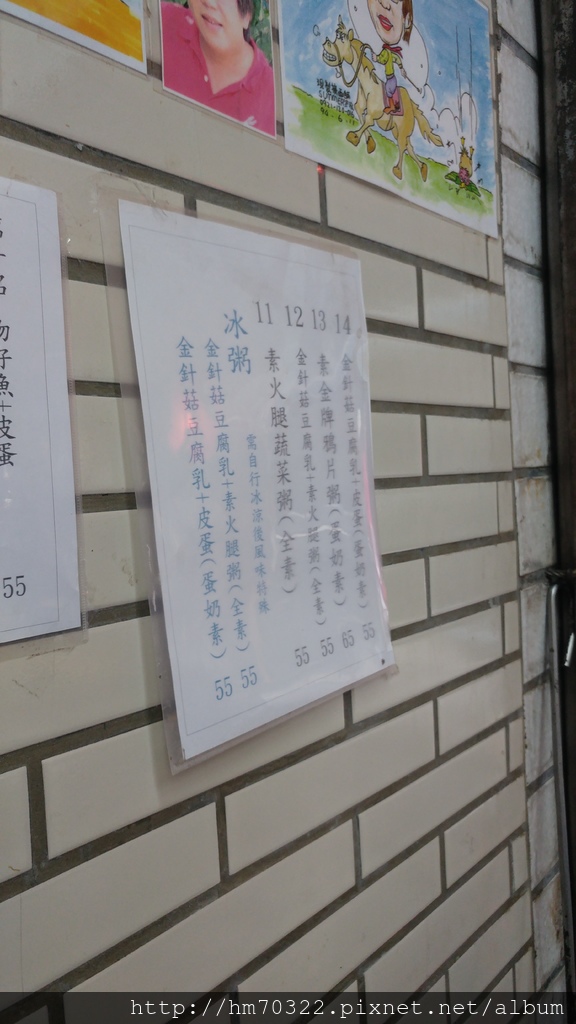 14 金針菇豆腐乳+皮蛋(蛋奶素) 55
13 素金牌鴉片粥(蛋奶素) 65
12 金針菇豆腐乳+素火腿粥(全素) 55
11 素火腿蔬菜粥(全素) 55
冰粥
需自行冰涼後風味特殊
金針菇豆腐乳+素火腿粥(全素) 55
金針菇豆腐乳+皮蛋(蛋奶素) 55
魚+皮蛋 55
http://hm70322.pixnet.net/album